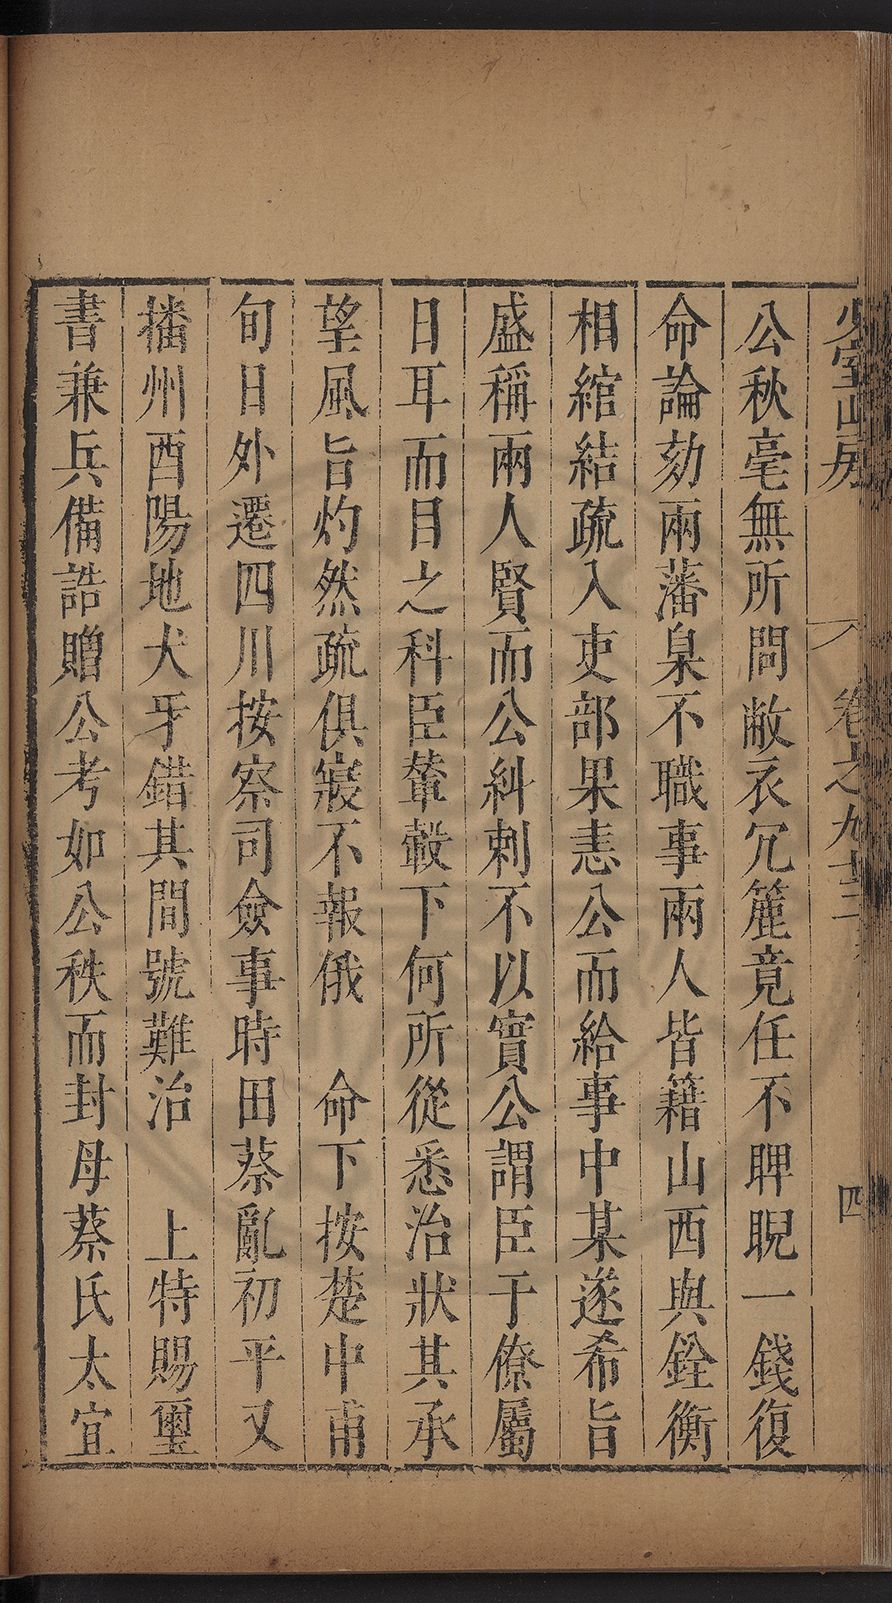 少室山房 卷之九十二 四
公秋毫無所問敝衣冗簏竟任不睥睨一錢復
命論劾兩藩臬不職事兩人皆籍山西與銓衡
相綰結疏入吏部果恚公而給事中某遂希旨
盛稱兩人賢而公糾刺不以實公謂臣于僚屬
日耳而目之科臣輦轂下何所從悉治狀其承
望風旨灼然疏俱寢不報俄 命下按楚中甫
旬日外遷四川按察司僉事時田蔡亂初平又
播州酉陽地犬牙錯其間號難治 上特賜璽
書兼兵備誥贈公考如公秩而封母蔡氏太宜